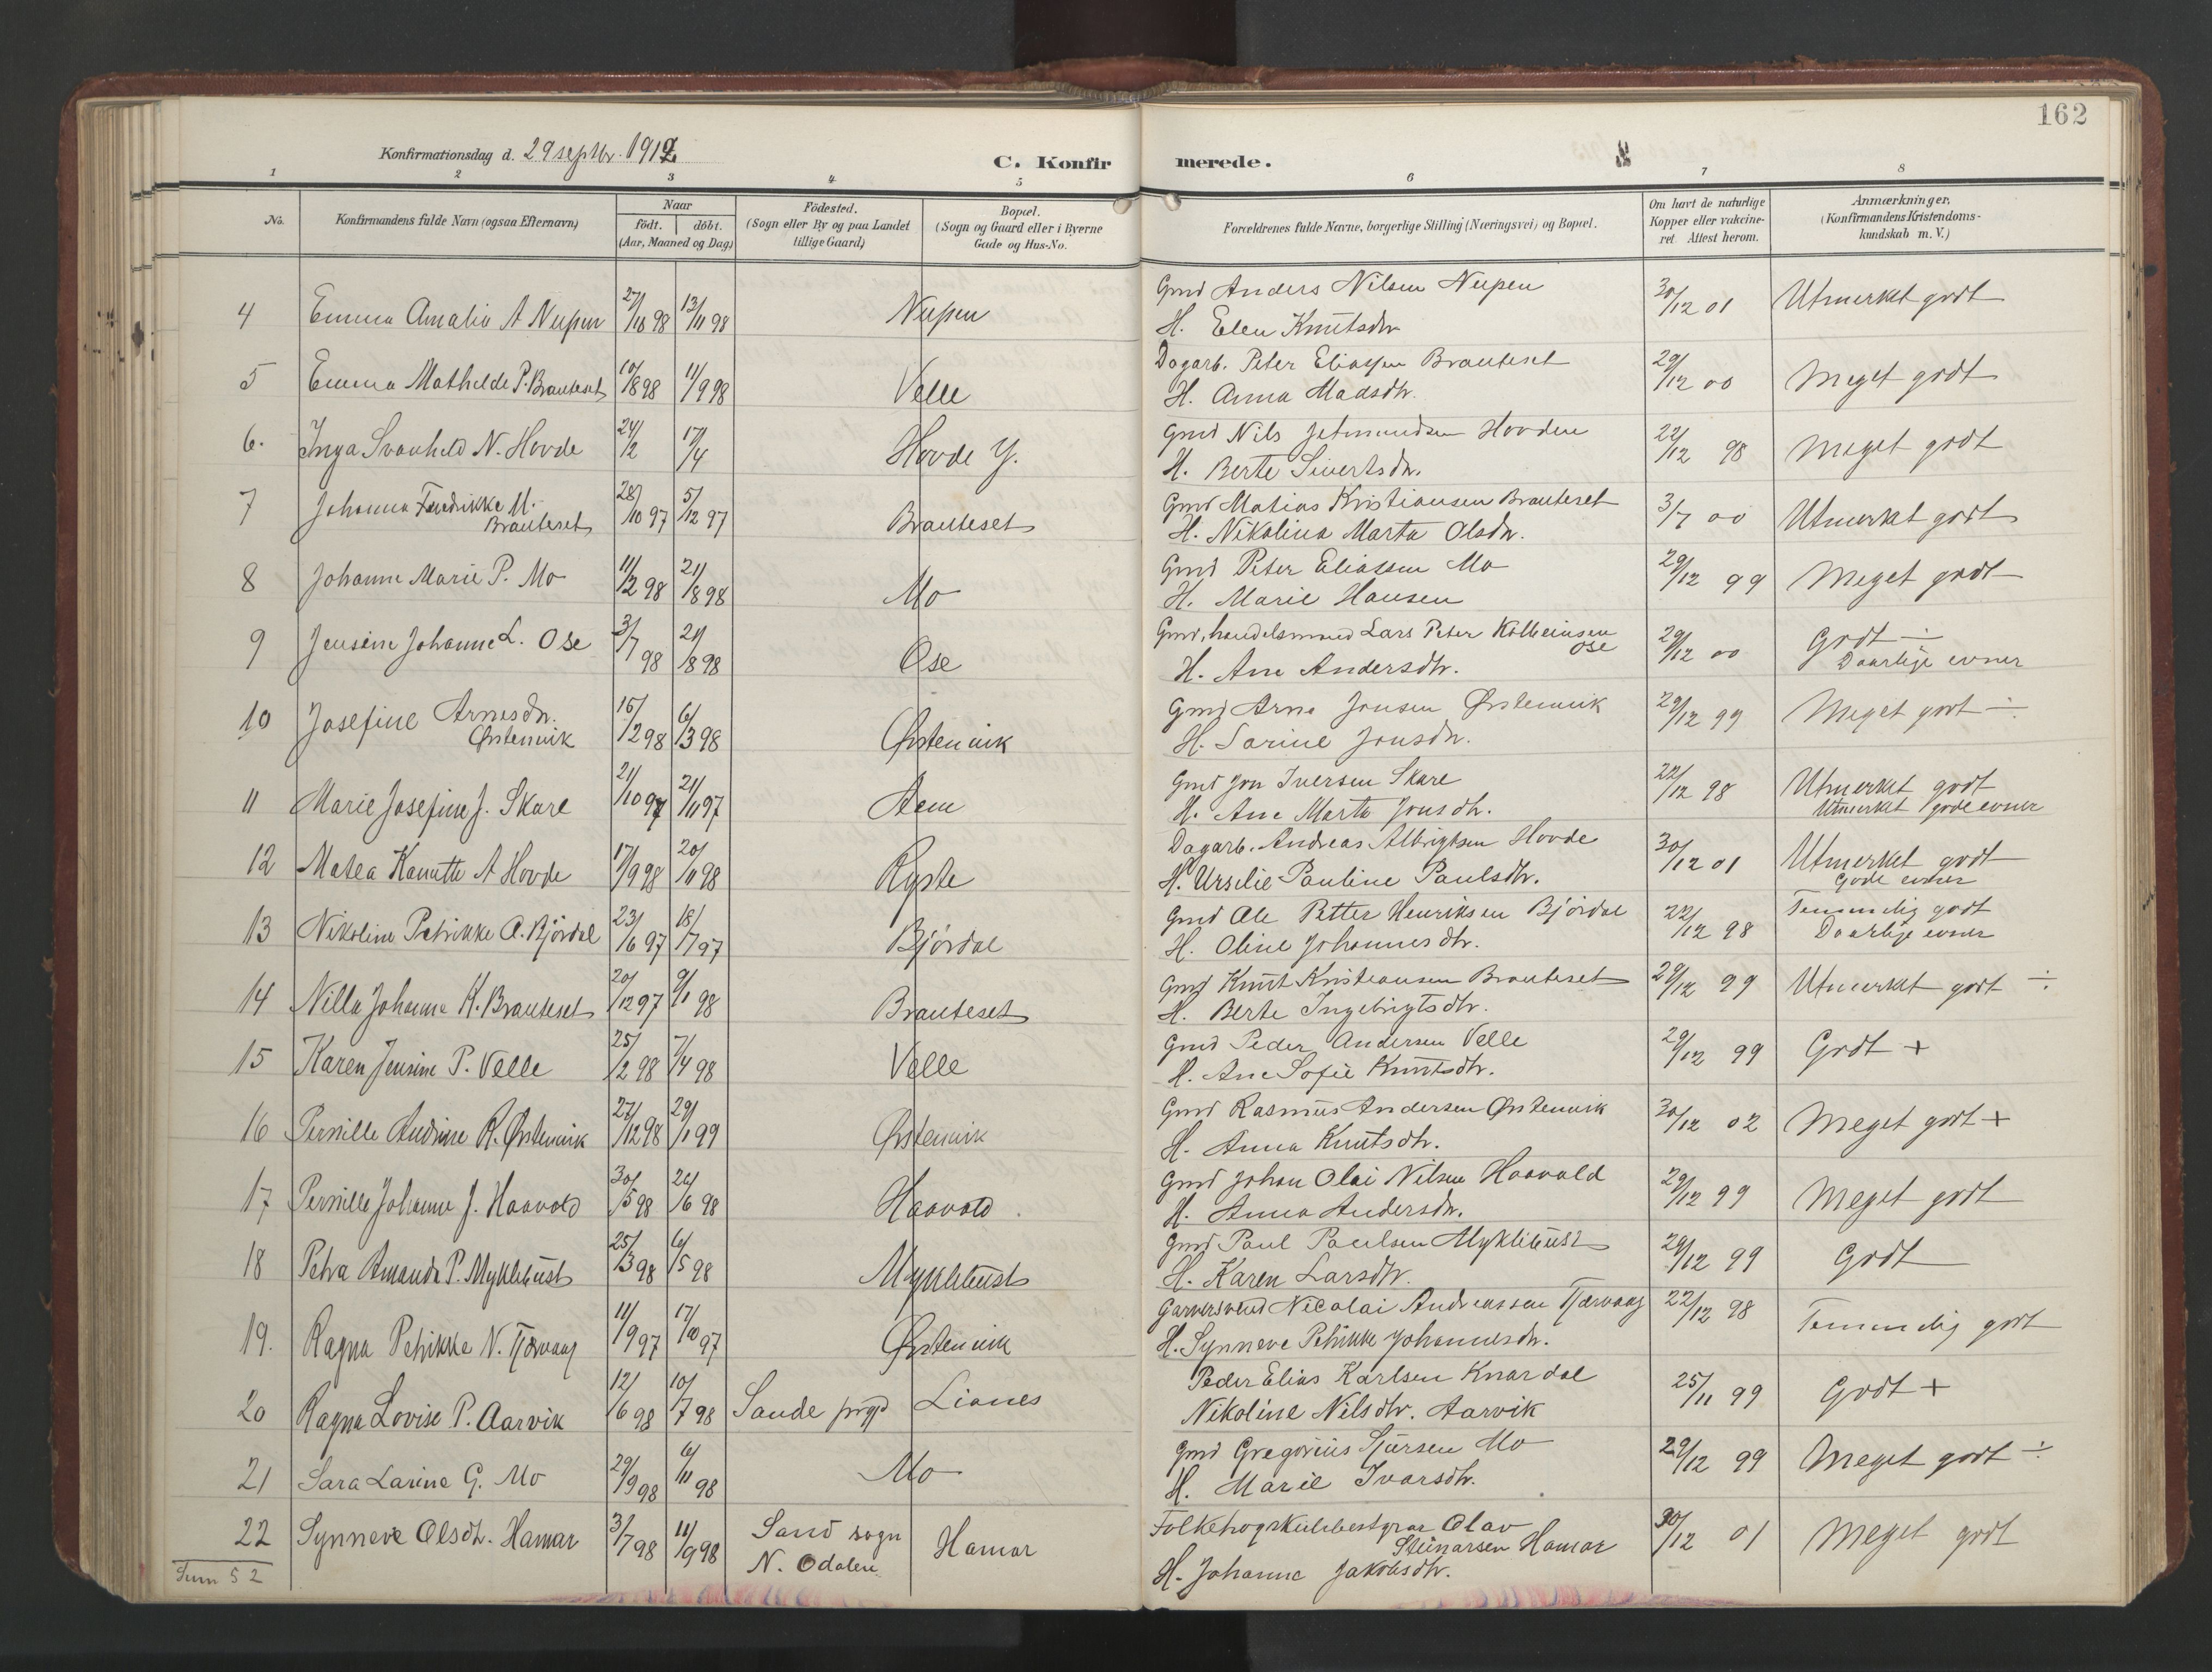 162
Konfirmationsdag d. 29 septbr. 1912
C. Konfirmerede.
1 2 3 4 5 6 7 8
No.
Konfirmandens fulde Navn (ogsaa Efternavn)
Naar
födt. döbt.
(Aar, Maaned og Dag)
Födested.
(Sogn eller By og paa Landet
tillige Gaard)
Bopæl.
(Sogn og Gaard eller i Byerne
Gade og Hus-No.
Forældrenes fulde Navne, borgerlige Stilling (Næringsvei) og Bopæl.
Om havt de naturlige
Kopper eller vakcine-
ret Attest herom.
Anmærkninger,
(Konfirmandens Kristendoms-
kundskab m.V.)
4 Emma Amalia A Nupen 27/10 98 13/11 98 Nupen Gmd Anders Nilsen Nupen 30/12 01 Utmerket godt
H. Elen Knutsdtr
5 Emma Mathilde P. Brauteset 10/8 98 11/9 98 Velle Dagarb. Peter Eliassen Brauteset 29/12 00 Meget godt
H. Anna Madsdtr.
6. Inga Svanhild N. Hovde 24/2 17/4 Hovde Y. Gmd Nils Jetmundsen Hovden 22/12 98 Meget godt
H. Berte Sivertsdtr.
7 Johanna Fredrikke M. 28/10 97 5/12 97 Brauteset Gmd Matias Kristiansen Brauteset 3/7 00 Utmerket godt
Brauteset H. Nikolina Marta Olsdtr.
8 Johanne Marie P. Mo 11/2 98 21/8 98 Mo Gmd Peter Eliassen Mo 29/12 99 Meget godt
H. Marie Hansen
9 Jensine Johanne L. Ose 3/7 98 21/8 98 Ose Gmd, handelsmand Lars Peter Kolbeinsen 29/12 00 Godt ÷
Ose Daarlige evner
H. Ane Andersdtr.
10 Josefine Arnesdtr. 15/2 98 6/3 98 Ørstenvik Gmd Arne Jonsen Ørstenvik 29/12 99 Meget godt ÷
Ørstenvik H. Sarine Jonsdtr.
11 Marie Josefine J. Skare 21/10 97 21/11 97 Aem Gmd Jon Iversen Skare 22/12 98 Utmerket godt
H. Ane Marta Jonsdtr. Utmerket gode evner
12 Matea Kanutte A Hovde 17/9 98 20/11 98 Ryste Dagarb. Andreas Albrigtsen Hovde 30/12 01 Utmerket godt
H. Urselie Pauline Paulsdtr. Gode evner
13 Nikoline Petrikke O. Björdal 23/6 97 18/7 97 Björdal Gmd Ole Petter Henriksen Björdal 22/12 98 Temmelig godt
H. Oline Johannesdtr. Daarlige evner
14 Nilla Johanna K. Brauteset 20/12 97 9/1 98 Brauteset Gmd Knut Kristiansen Brauteset 29/12 99 Utmerket godt ÷
H. Berte Ingebrigtsdtr.
15 Karen Jensine P. Velle 25/2 98 7/4 98 Velle Gmd Peder Andersen Velle 29/12 99 Godt +
H. Ane Sofie Knutsdtr.
16 Pernille Andrine R. Ørstenvik 27/12 98 29/1 99 Ørstenvik Gmd Rasmus Andersen Ørstenvik 30/12 02 Meget godt +
H. Anna Knutsdtr.
17 Pernille Johanne J. Haavold 30/5 98 26/6 98 Haavold. Gmd Johan Olai Nilsen Haavald 29/12 99 Meget godt
H. Anna Andersdtr.
18 Petra Amanda P. Myklebust 25/3 98 6/5 98 Myklebust Gmd Paul Paulsen Myklebust 29/12 99 Godt
H. Karen Larsdtr.
19. Ragna Petrikke N. Tjørvaag 11/9 97 17/10 97 Ørstenvik Garversvend Nicolai Andreassen Tjørvaag 22/12 98 Temmelig godt
H. Synneve Petrikke Johannesdtr.
20 Ragna Lovise P. Aarvik 12/6 98 10/7 98 Sande prgd Lianes Peder Elias Karlsen Knardal 25/11 99 Godt +
Nikoline Nilsdtr. Aarvik
21 Sara Larina G. Mo 29/9 98 6/11 98 Mo Gmd Gregorius Sjursen Mo 29/12 99 Meget godt ÷
H. Marie Ivarsdtr.
22 Synneve Olsdtr. Hamar 3/7 98 11/9 98 Sand sogn Hamar Folkehögskulebestyrar Olav 30/12 01 Meget godt
N. Odalen Steinarsen Hamar
H. Johanna Jakobsdtr.
Sum 52